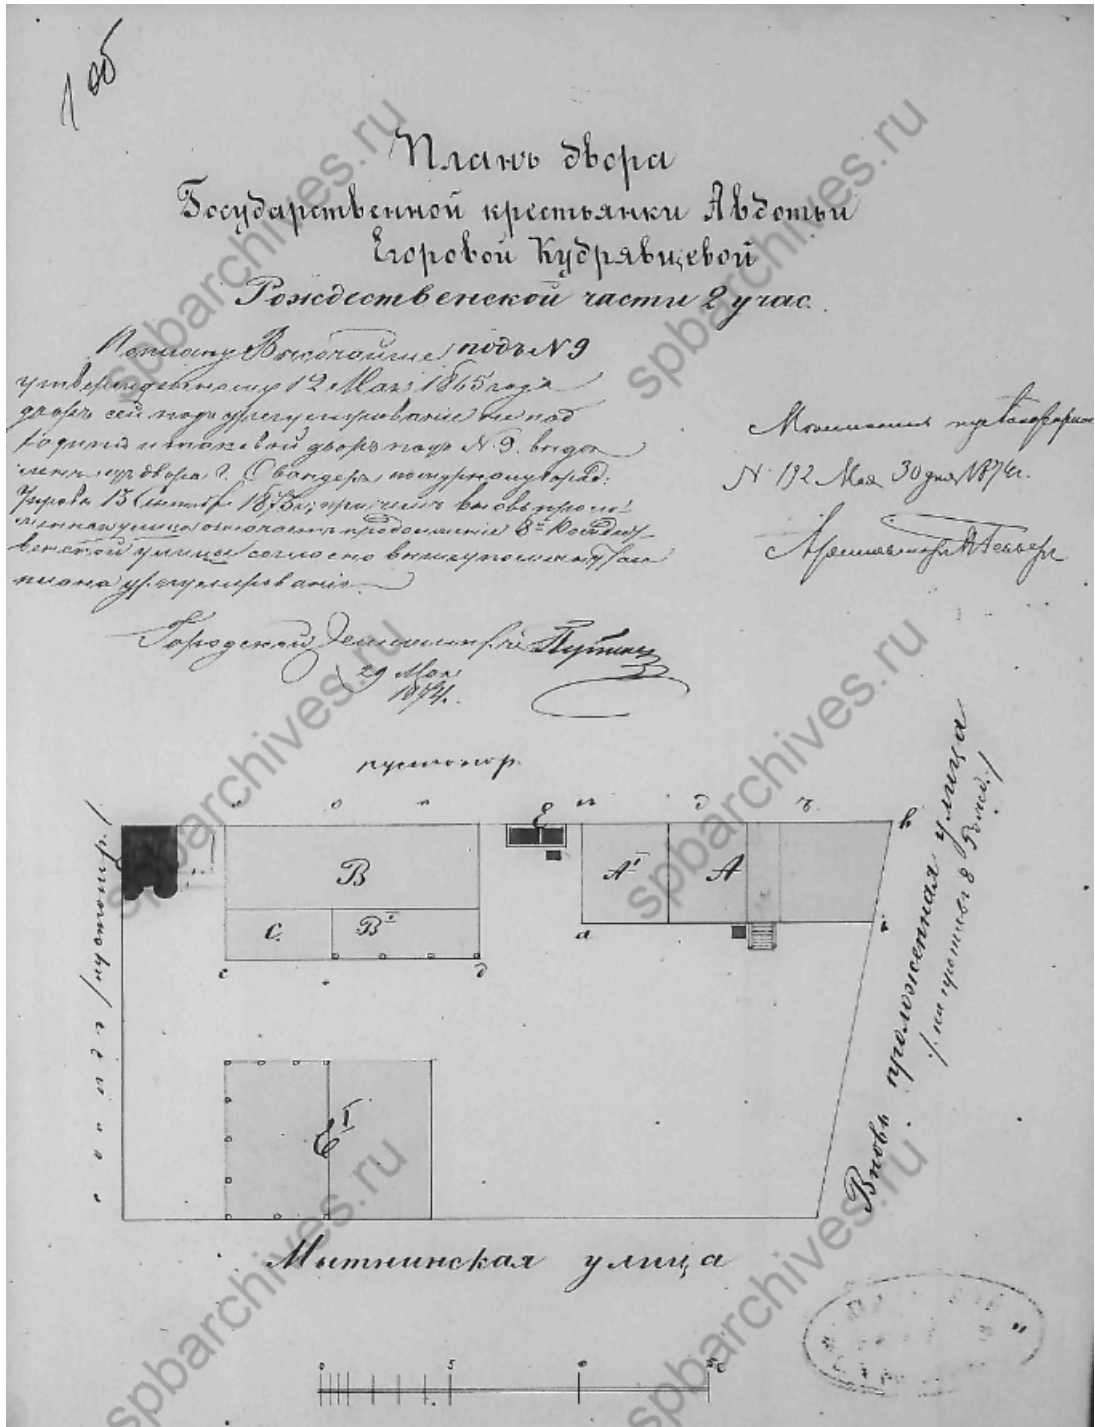 1 об
Планъ двора
Государственной крестьянки Авдотьи
Егоровой Кудрявцевой
Рождественской части 2 учас.
По плану Высочайше подъ N 9
утвержденному 12 Мая 1865 года
дворъ сей подъ урегулированіе не под
ходитъ и таковой дворъ подъ N. 9. выдѣ
ленъ изъ двора Г. по журналу Город:
Управы 13 Сентября 1873 г; при чемъ вновь проло
женная улица означаетъ продолженіе 8й Рождест
венской улицы согласно вышеупомянутаго
плана урегулированія.
Городской
29 Мая
1874.
N 192 Мая 30 дня 1874 г.
Архитекторъ
пустопор.
Е
В
А I
А
С.
В I
а
с
д
Е I
Вновь проложенная улица
/ на противъ 8 Рожд. /
Мытнинская улица
0 5 10 15 с
spbarchives.ru
spbarchives.ru
spbarchives.ru
spbarchives.ru
spbarchives.ru
spbarchives.ru